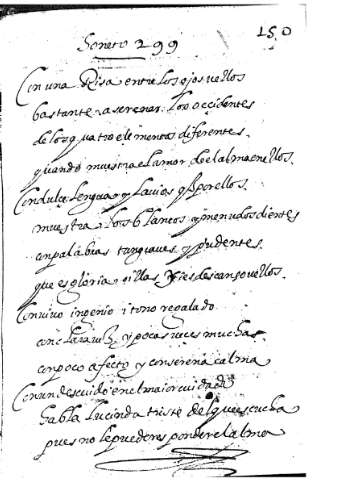 150
Soneto 299
Con una Risa entre los ojos vellos
bastante a serenar los occidentes
de los quatro elementos diferentes
quando muestra el amor de el alma en ellos
Con dulce lengua y lavios q por ellos
muestra los blancos y menudos dientes
con palabras tan graves y prudentes
que es gloria oillas y es descanso vellos
Con vivo ingenio i tono regalado
con clara voz y pocas veces mucha
con poco afecto y con serena calma
Con un descuido en el maior cuidado
habla Lucinda triste del q la escucha
pues no le puede responder el alma